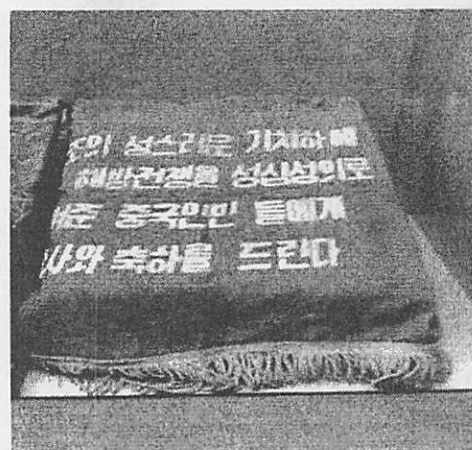 의 성스러운 기치하에
해방전쟁을 성심성의로
준 중국인민 들에게
와 축하을 드린다